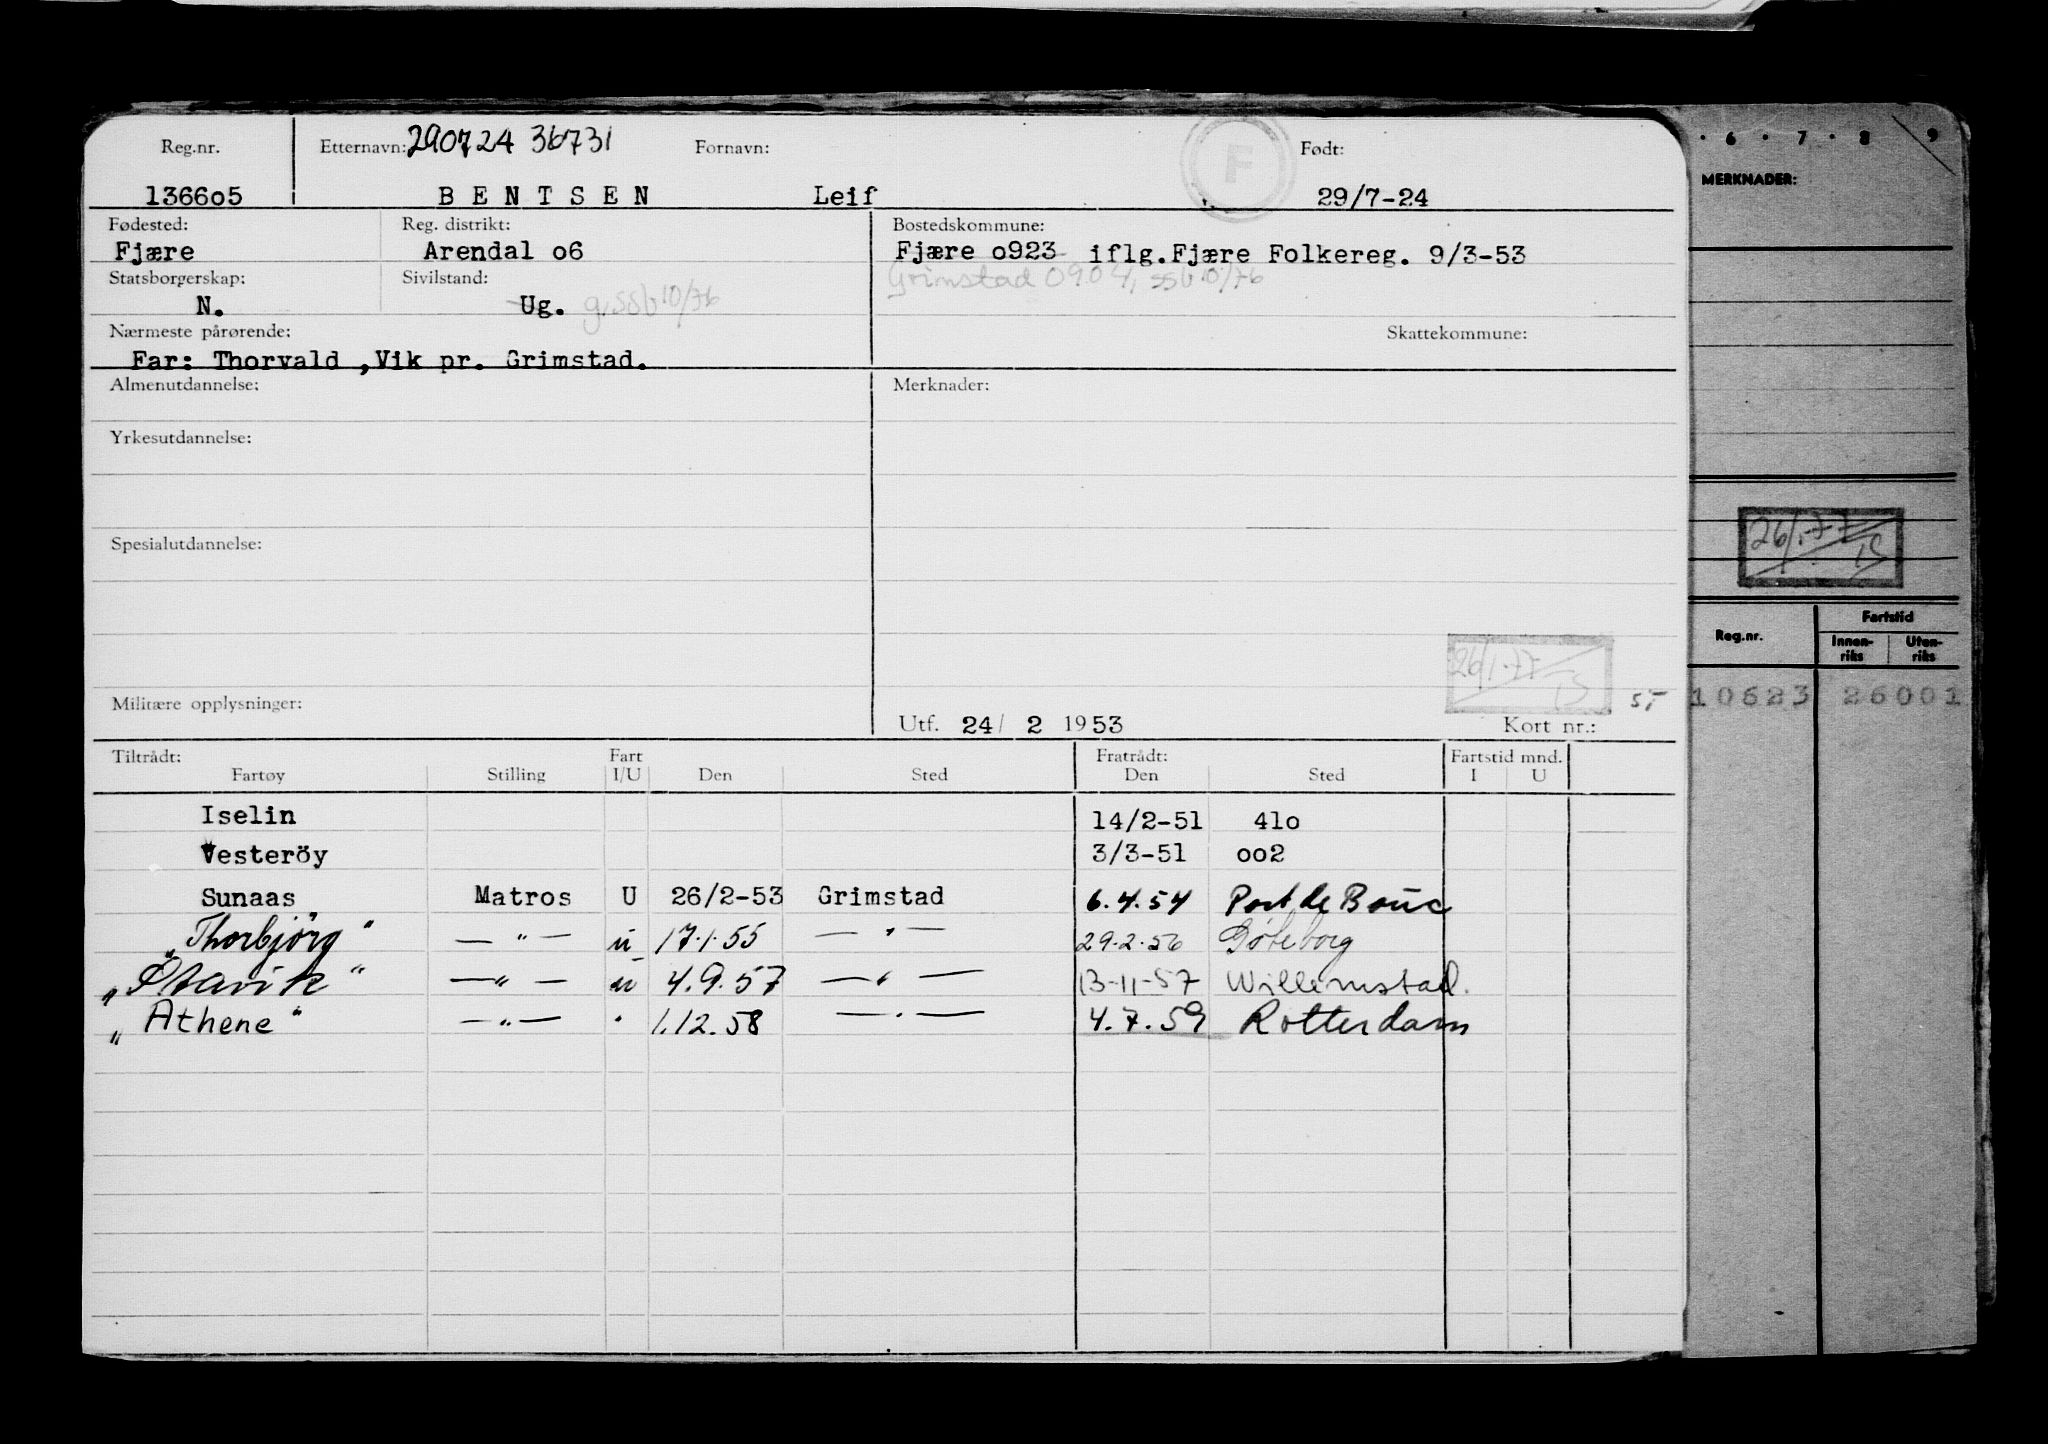 Reg.nr. Etternavn: 290724 36731 Fornavn: F Født:
1366o5 B E N T S E N Leif 29/7-24
Fødested: Reg. distrikt: Bostedskommune:
Fjære Arendal o6 Fjære o923 iflg.Fjære Folkereg. 9/3-53
Grimstad 0904, ssb 10/76
Statsborgerskap: Sivilstand:
N. Ug. g. ssb 10/76
Nærmeste pårørende: Skattekommune:
Far: Thorvald ,Vik pr. Grimstad.
Almenutdannelse: Merknader:
Yrkesutdannelse:
Spesialutdannelse:
26/1-77
Militære opplysninger: Utf. 24/ 2 1953 Kort nr.:
Tiltrådt: Fart Fratrådt: Fartstid mnd.
Fartøy Stilling I/U Den Sted Den Sted I U
Iselin 14/2-51 41o
Vesteröy 3/3-51 oo2
Sunaas Matros U 26/2-53 Grimstad 6.4.54 Port de Bouc
"Thorbjörg" —"— u 17.1.55 —"— 29.2.56 Göteborg
"Østavik" —"— u 4.9.57 —"— 13-11-57 Willemstad.
"Athene" —"— " 1.12.58 —"— 4.7.59 Rotterdam
· 6 · 7 · 8 9
MERKNADER:
26/1-77
Reg.nr. Fartstid
Innen-riks Uten-riks
10623 26001